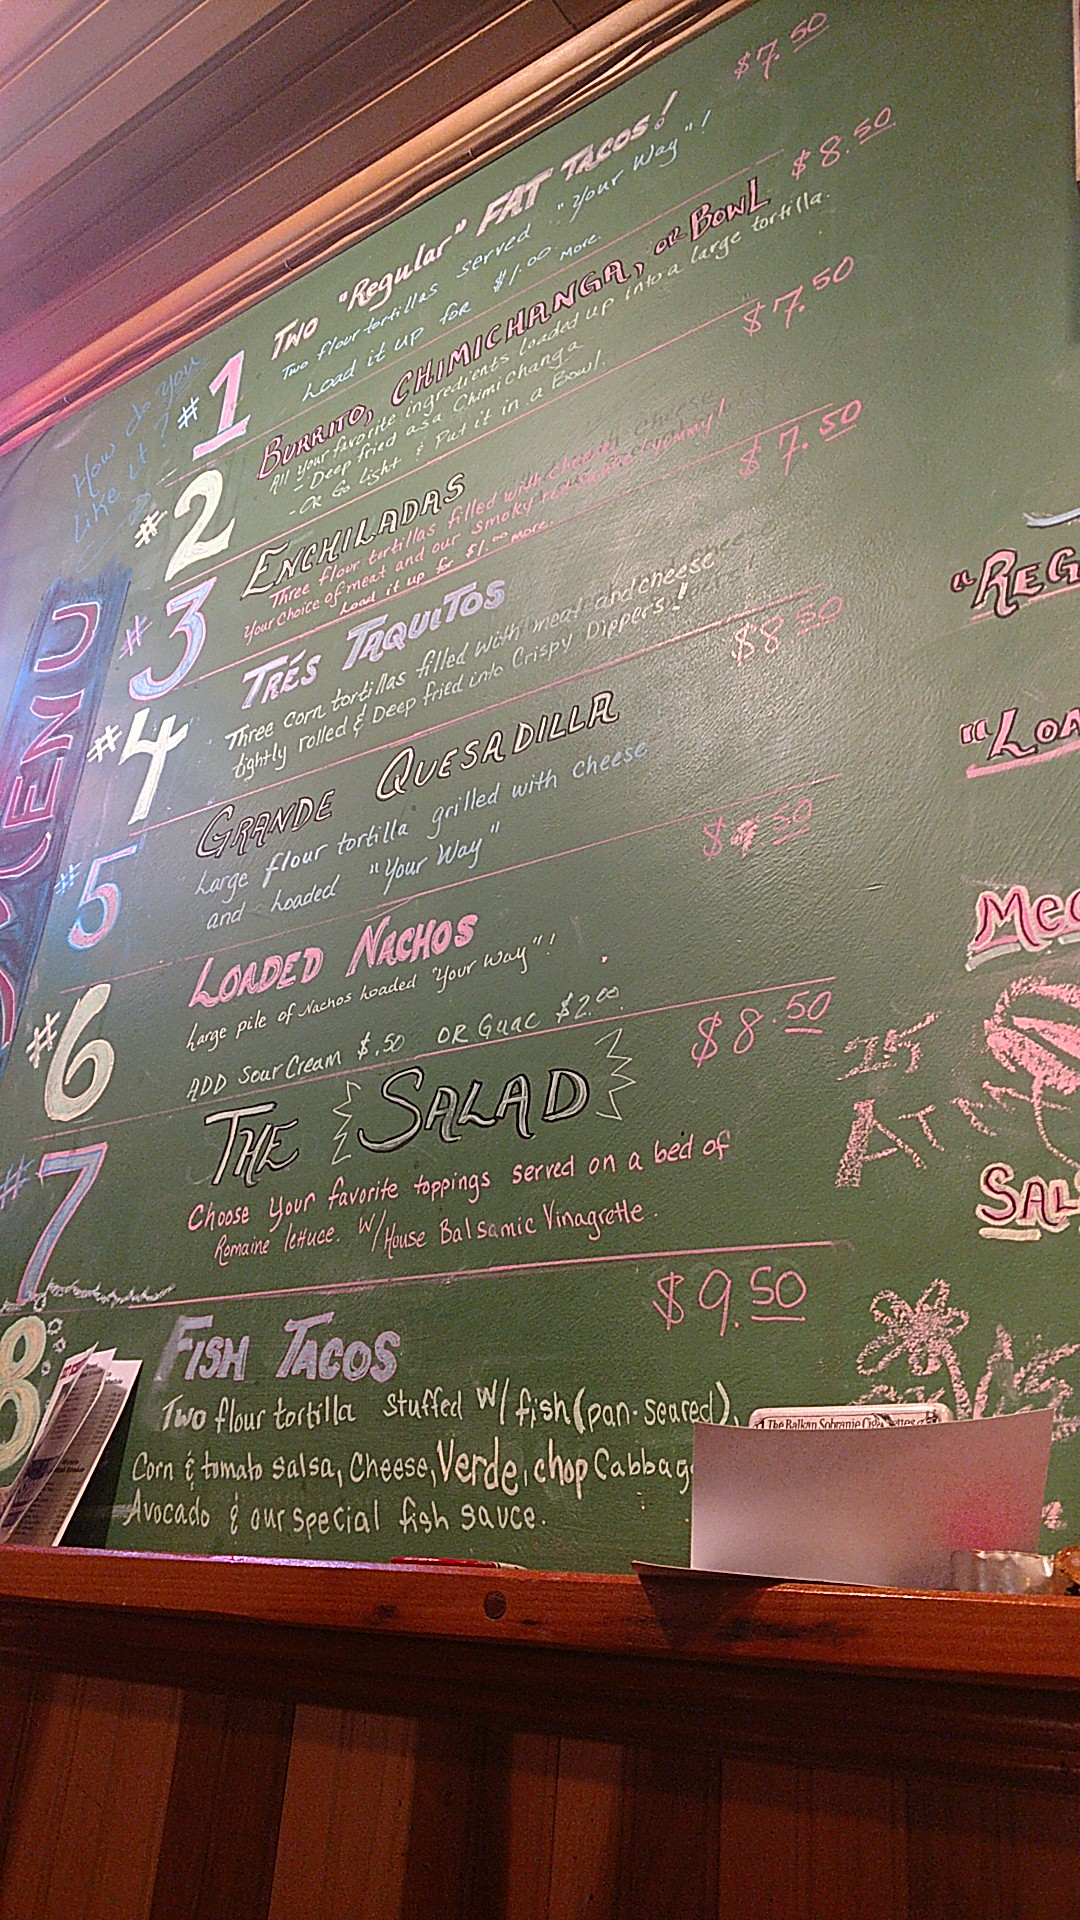 How do you
like it?
MENU
#1 Two "Regular" FAT TACOS! $7.50
Two flour tortillas served "Your Way"!
Load it up for $1.00 more.
#2 BURRITO, CHIMICHANGA, or BOWL $8.50
All your favorite ingredients loaded up into a large tortilla.
- Deep fried as a Chimichanga
- OR Go Light & Put it in a Bowl.
#3 ENCHILADAS $7.50
Three flour tortillas filled with cheese
Your choice of meat and our smoky red sauce (yummy!
Load it up for $1.00 more.
#4 TRÉS TAQUITOS $7.50
Three corn tortillas filled with meat and cheese
tightly rolled & Deep fried into Crispy Dippers!
#5 GRANDE QUESADILLA $8.50
Large flour tortilla grilled with cheese
and Loaded "Your Way"
#6 LOADED NACHOS $ .50
Large pile of Nachos Loaded "Your Way"!
ADD Sour Cream $.50 OR Guac $2.00
#7 THE SALAD $8.50
Choose Your favorite toppings served on a bed of
Romaine lettuce. W/House Balsamic Vinagrette.
8 FISH TACOS $9.50
Two flour tortilla Stuffed W/ fish (pan-seared),
Corn & tomato salsa, Cheese, Verde, chop Cabbag
Avocado & our special fish sauce.
"REG
"LOA
ATM
SALS
The Balkan Sobranie